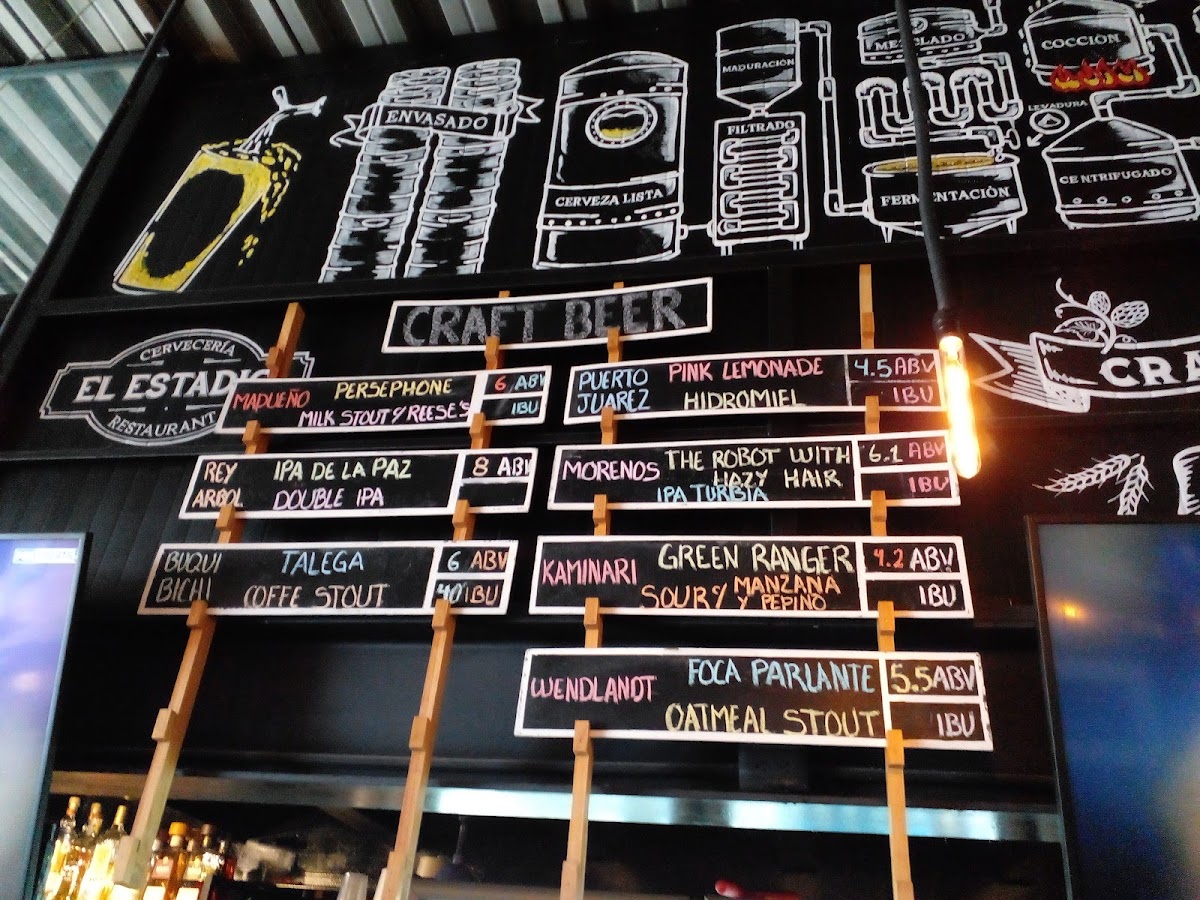 ENVASADO
CERVEZA LISTA
MADURACIÓN
FILTRADO
MEZCLADO
FERMENTACIÓN
COCCIÓN
LEVADURA
CENTRIFUGADO
CERVECERÍA
EL ESTADIO
RESTAURANT
CRAFT BEER
MADUEÑO PERSEPHONE 6 ABV
MILK STOUT Y REESE'S IBU
REY IPA DE LA PAZ 8 ABV
ARBOL DOUBLE IPA
BUQUI TALEGA 6 ABV
BICHI COFFE STOUT 40 IBU
PUERTO PINK LEMONADE 4.5 ABV
JUAREZ HIDROMIEL IBU
MORENOS THE ROBOT WITH 6.1 ABV
HAZY HAIR IBU
IPA TURBIA
KAMINARI GREEN RANGER 4.2 ABV
SOUR Y MANZANA IBU
Y PEPINO
WENDLANDT FOCA PARLANTE 5.5 ABV
OATMEAL STOUT IBU
CRA